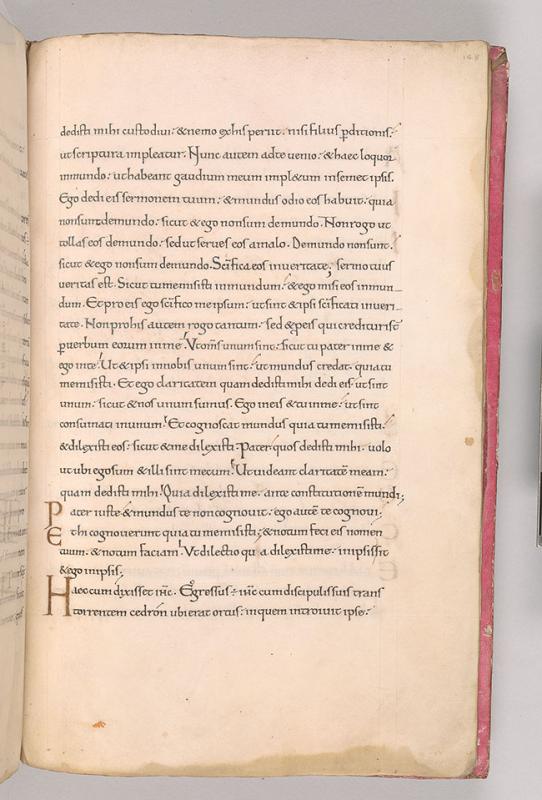 148
dedisti mihi custodivi · & nemo ex his periit · nisi filius p̄ditionis ·
ut scriptura impleatur · Nunc autem ad te venio · & haec loquor
in mundo · ut habeant gaudium meum impl&um in semet ipsis ·
Ego dedi eis sermonem tuum · & mundus odio eos habuit · quia
non sunt de mundo · sicut & ego non sum de mundo · Non rogo ut
tollas eos de mundo · sed ut serves eos a malo · De mundo non sunt ·
sicut & ego non sum de mundo · Sc̄ifica eos in veritate, sermo tuus
veritas est · Sicut tu me misisti in mundum · & ego misi eos in mun-
dum · Et pro eis ego sc̄ifico me ipsum · ut sint & ipsi sc̄ificati in veri-
tate · Non pro his autem rogo tantum · sed & p̄ eis qui credituri s̄t
p̄ verbum eorum in me · Ut om̄s unum sint · sicut tu pater in me &
ego in te · Ut & ipsi in nobis unum sint · ut mundus credat · quia tu
me misisti · Et ego claritatem quam dedisti mihi dedi eis · ut sint
unum · sicut & nos unum sumus · Ego in eis & tu in me · ut sint
consumati in unum · Et cognoscat mundus quia tu me misisti ·
& dilexisti eos · sicut & me dilexisti · Pater quos dedisti mihi · volo
ut ubi ego sum & illi sint mecum · Ut videant claritatē meam ·
quam dedisti mihi · Quia dilexisti me · ante constitutionē mundi ;
Pater iuste & mundus te non cognovit · ego autē te cognovi ·
Et hi cognoverunt quia tu me misisti ; & notum feci eis nomen
tuum · & notum faciam · Ut dilectio qua dilexisti me · in ipsis sit
& ego in ipsis ;
Haec cum dixisset ih̄c · Egressus ÷ ih̄c cum discipulis suis trans
torrentem cedron ubi erat ortus · in quem introivit ipse ·